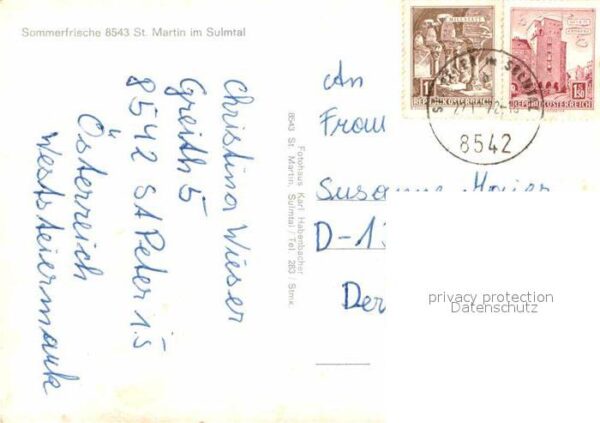 Sommerfrische 8543 St. Martin im Sulmtal
Christina Wieser
Greith 5
8542 St Peter i. S
Österreich
Weststeiermark
Fotohaus Karl Habenbacher
8543 St. Martin, Sulmtal / Tel. 283 / Stmk.
MILLSTATT
1
REPUBLIK ÖSTERREICH
1.50
REPUBLIK ÖSTERREICH
8542
An
Frau
Susanne
D-1
privacy protection
Datenschutz